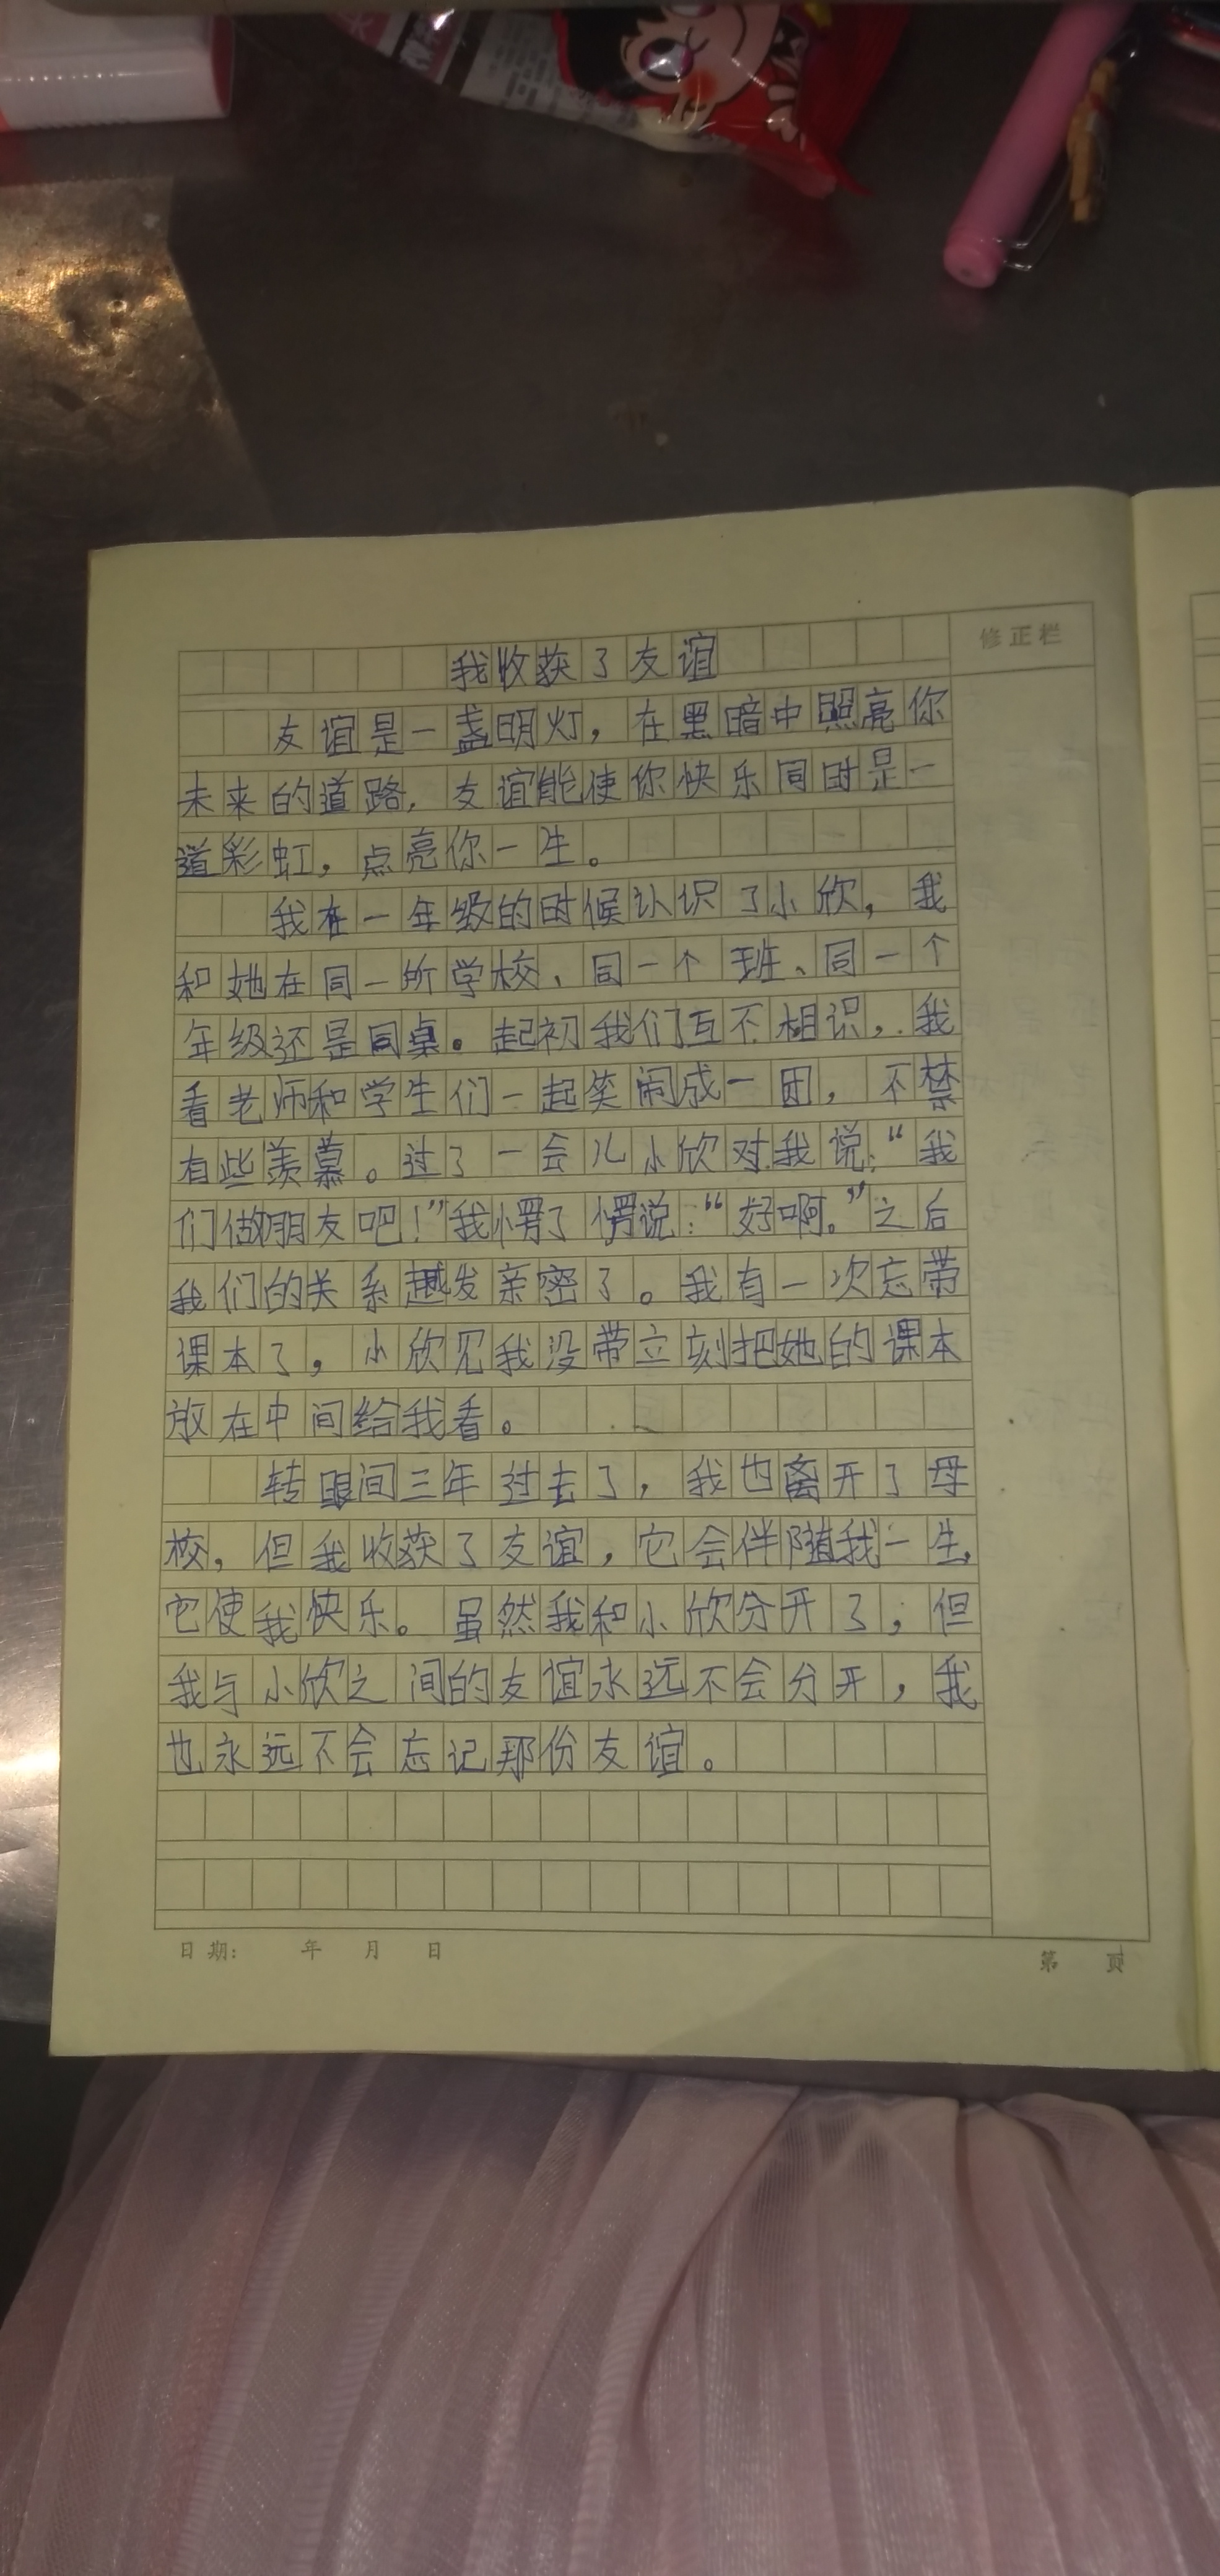 修正栏
我收获了友谊
友谊是一盏明灯，在黑暗中照亮你
未来的道路，友谊能使你快乐同时是一
道彩虹，点亮你一生。
我在一年级的时候认识了小欣，我
和她在同一所学校、同一个班、同一个
年级还是同桌。起初我们互不相识，我
看老师和学生们一起笑闹成一团，不禁
有些羡慕。过了一会儿小欣对我说：“我
们做朋友吧！”我愣了愣说：“好啊。”之后
我们的关系越发亲密了。我有一次忘带
课本了，小欣见我没带立刻把她的课本
放在中间给我看。
转眼间三年过去了，我也离开了母
校，但我收获了友谊，它会伴随我一生，
它使我快乐。虽然我和小欣分开了，但
我与小欣之间的友谊永远不会分开，我
也永远不会忘记那份友谊。
日期：　年　月　日
第　页